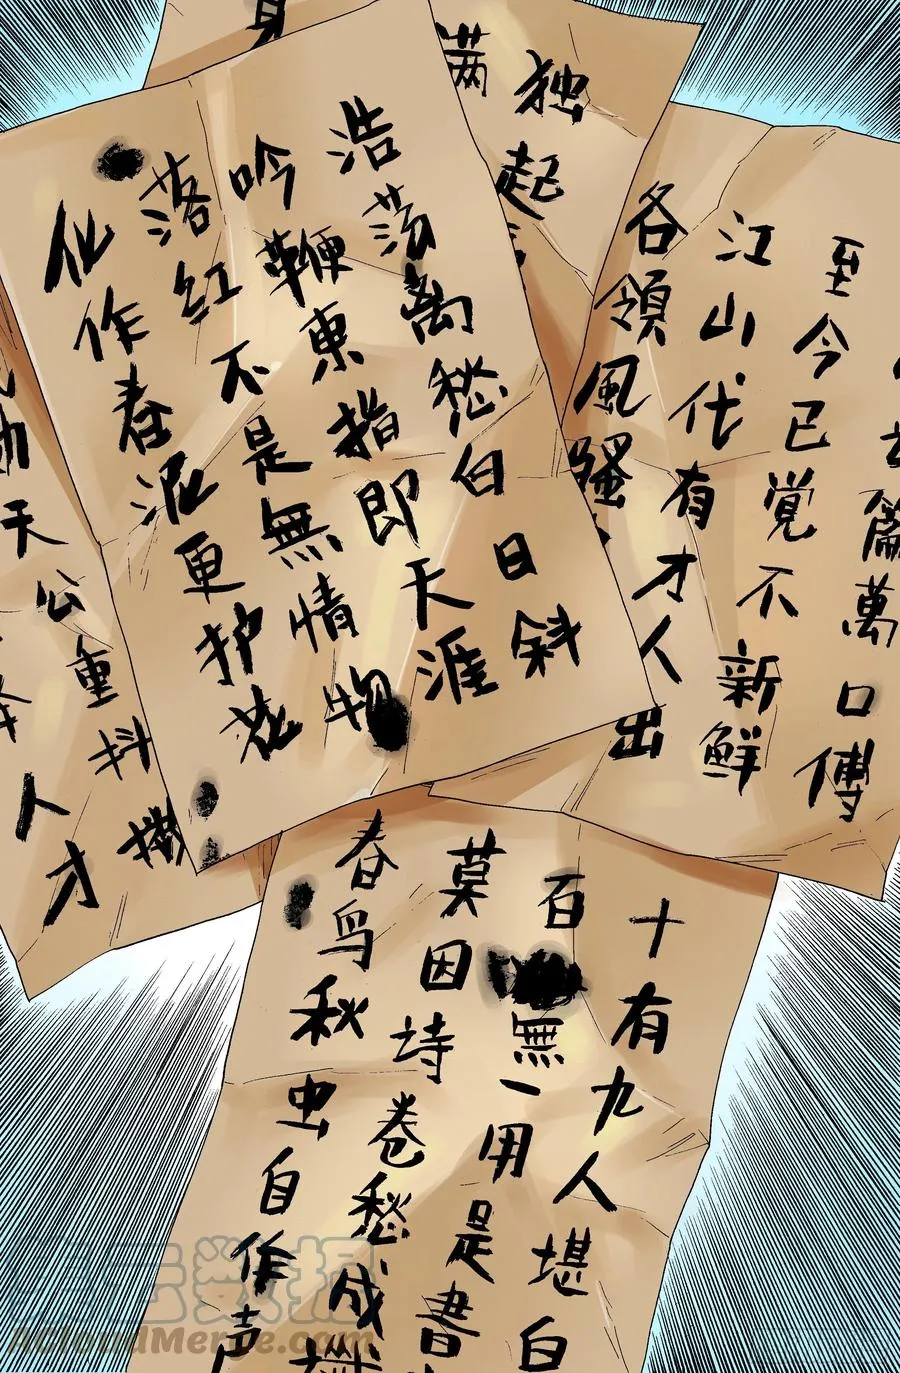 身
满
独起
李杜詩篇萬口傅
至今已觉不新鮮
江山代有才人出
各領風騷
浩荡离愁白日斜
吟鞭東指即天涯
落红不是無情物
化作春泥更护花
劝天公重抖擞
人才
十有九人堪白
百無一用是書
莫因詩卷愁成讖
春鸟秋虫自作声
ACloudMerge.com